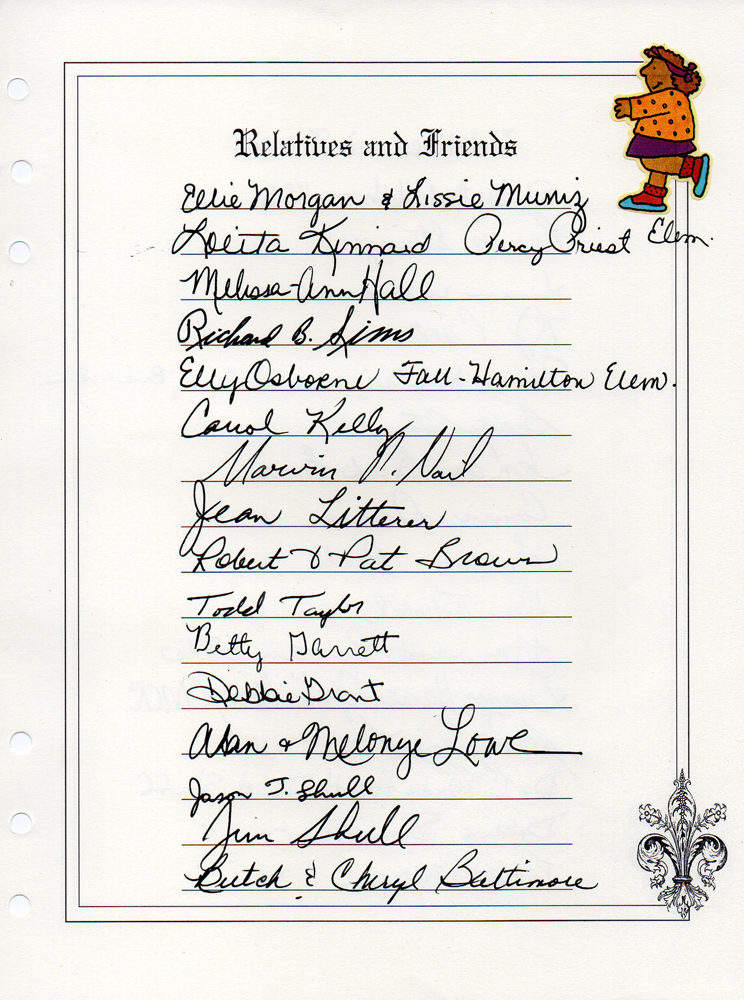 Relatives and Friends
Ellie Morgan & Lissie Muniz
Lolita Kinnard Percy Priest Elem.
Melissa-Ann Hall
Richard B. Sims
Elly Osborne Fall-Hamilton Elem.
Carol Kelly
Marvin P. Nail
Jean Litterer
Robert & Pat Brown
Todd Taylor
Betty Garrett
Debbie Grant
Alan & Melonye Lowe
Jason T. Shull
Jim Shull
Butch & Cheryl Baltimore